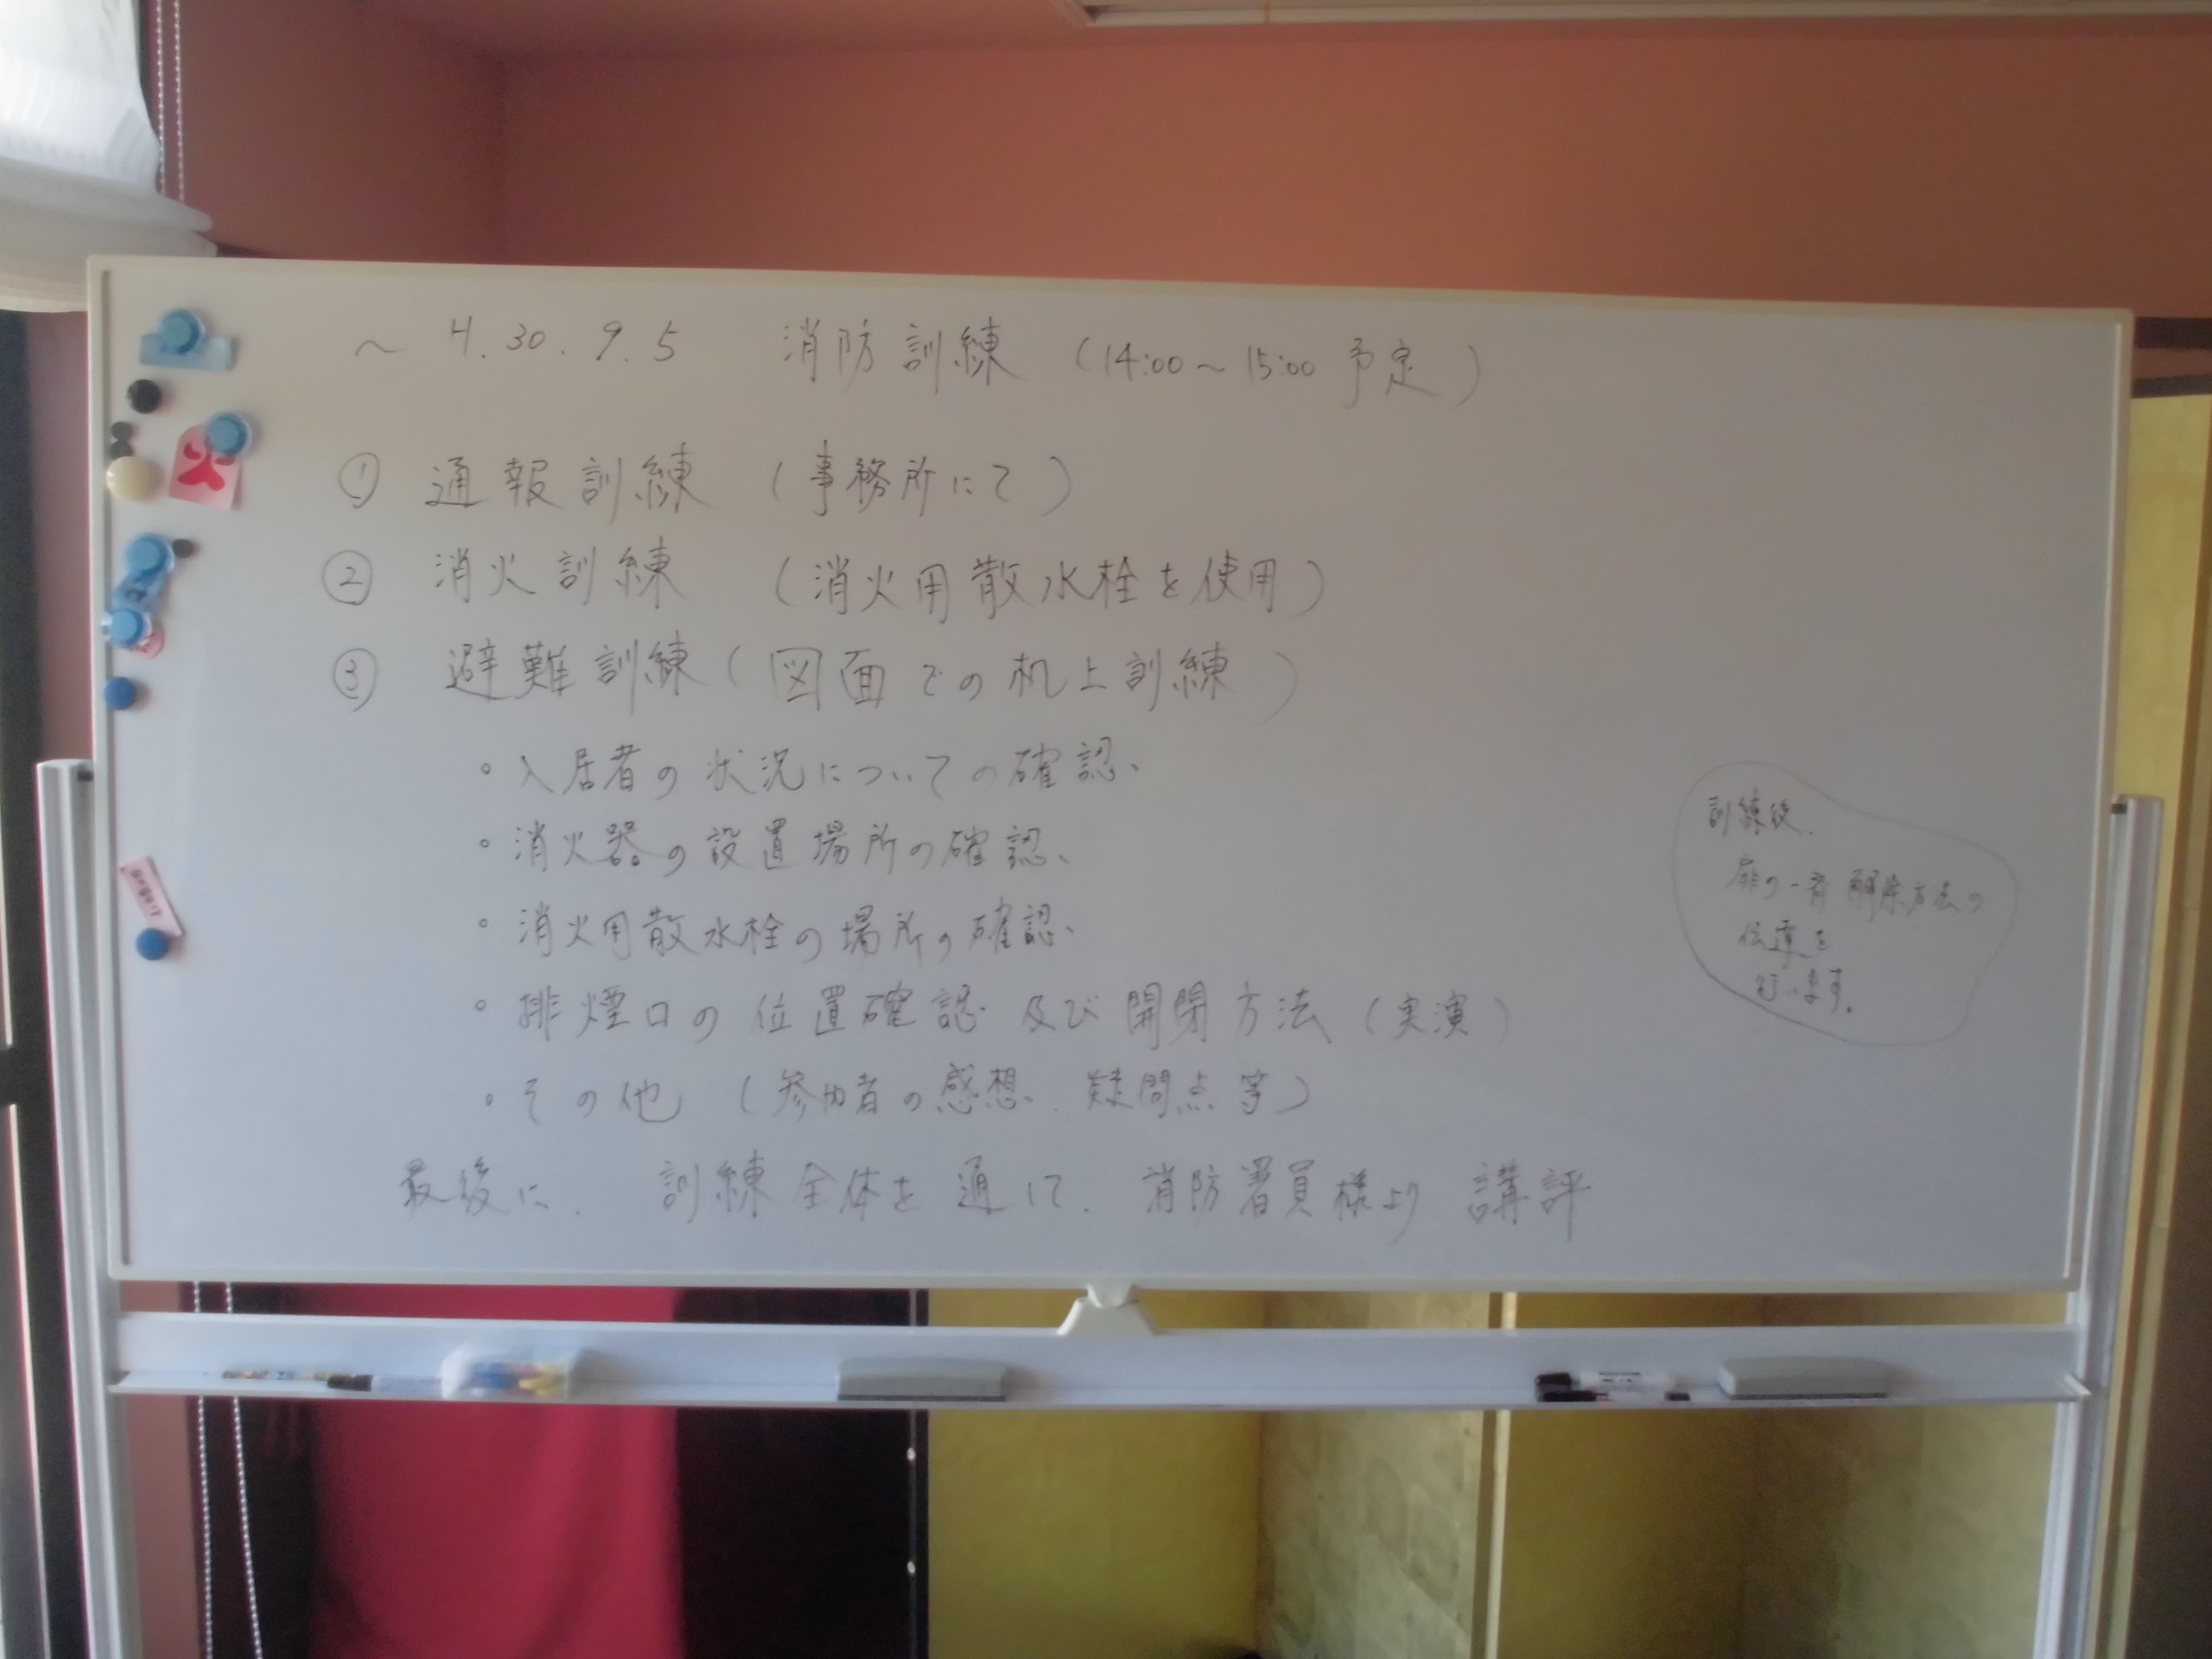 ～ H.30.9.5 消防訓練 (14:00～15:00 予定)
① 通報訓練 (事務所にて)
② 消火訓練 (消火用散水栓を使用)
③ 避難訓練 (図面での机上訓練)
・入居者の状況についての確認、
・消火器の設置場所の確認、
・消火用散水栓の場所の確認、
・排煙口の位置確認 及び 開閉方法 (実演)
・その他 (参加者の感想、疑問点等)
最後に、訓練全体を通して、消防署員様より 講評
訓練後、
扉の一斉解除方法の
伝達を
行います。
火